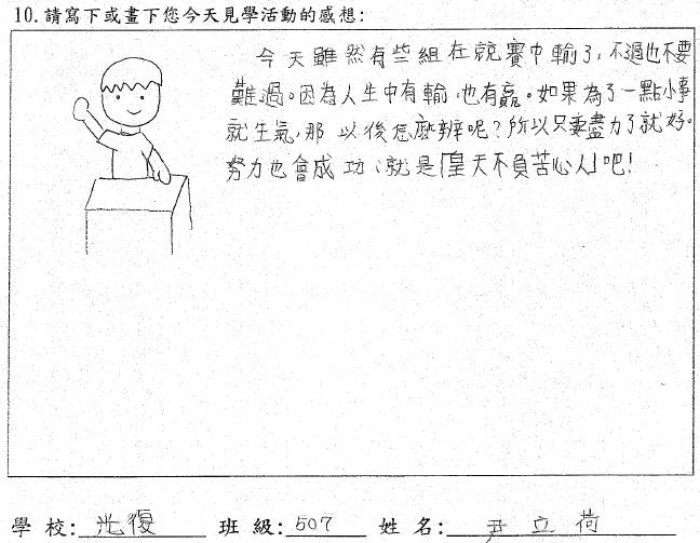 10.請寫下或畫下您今天見學活動的感想:
今天雖然有些組在競賽中輸了,不過也不要
難過。因為人生中有輸,也有贏。如果為了一點小事
就生氣,那以後怎麼辨呢?所以只要盡力了就好。
努力也會成功,就是「皇天不負苦心人」吧!
學校:光復 班級:507 姓名:尹立荷